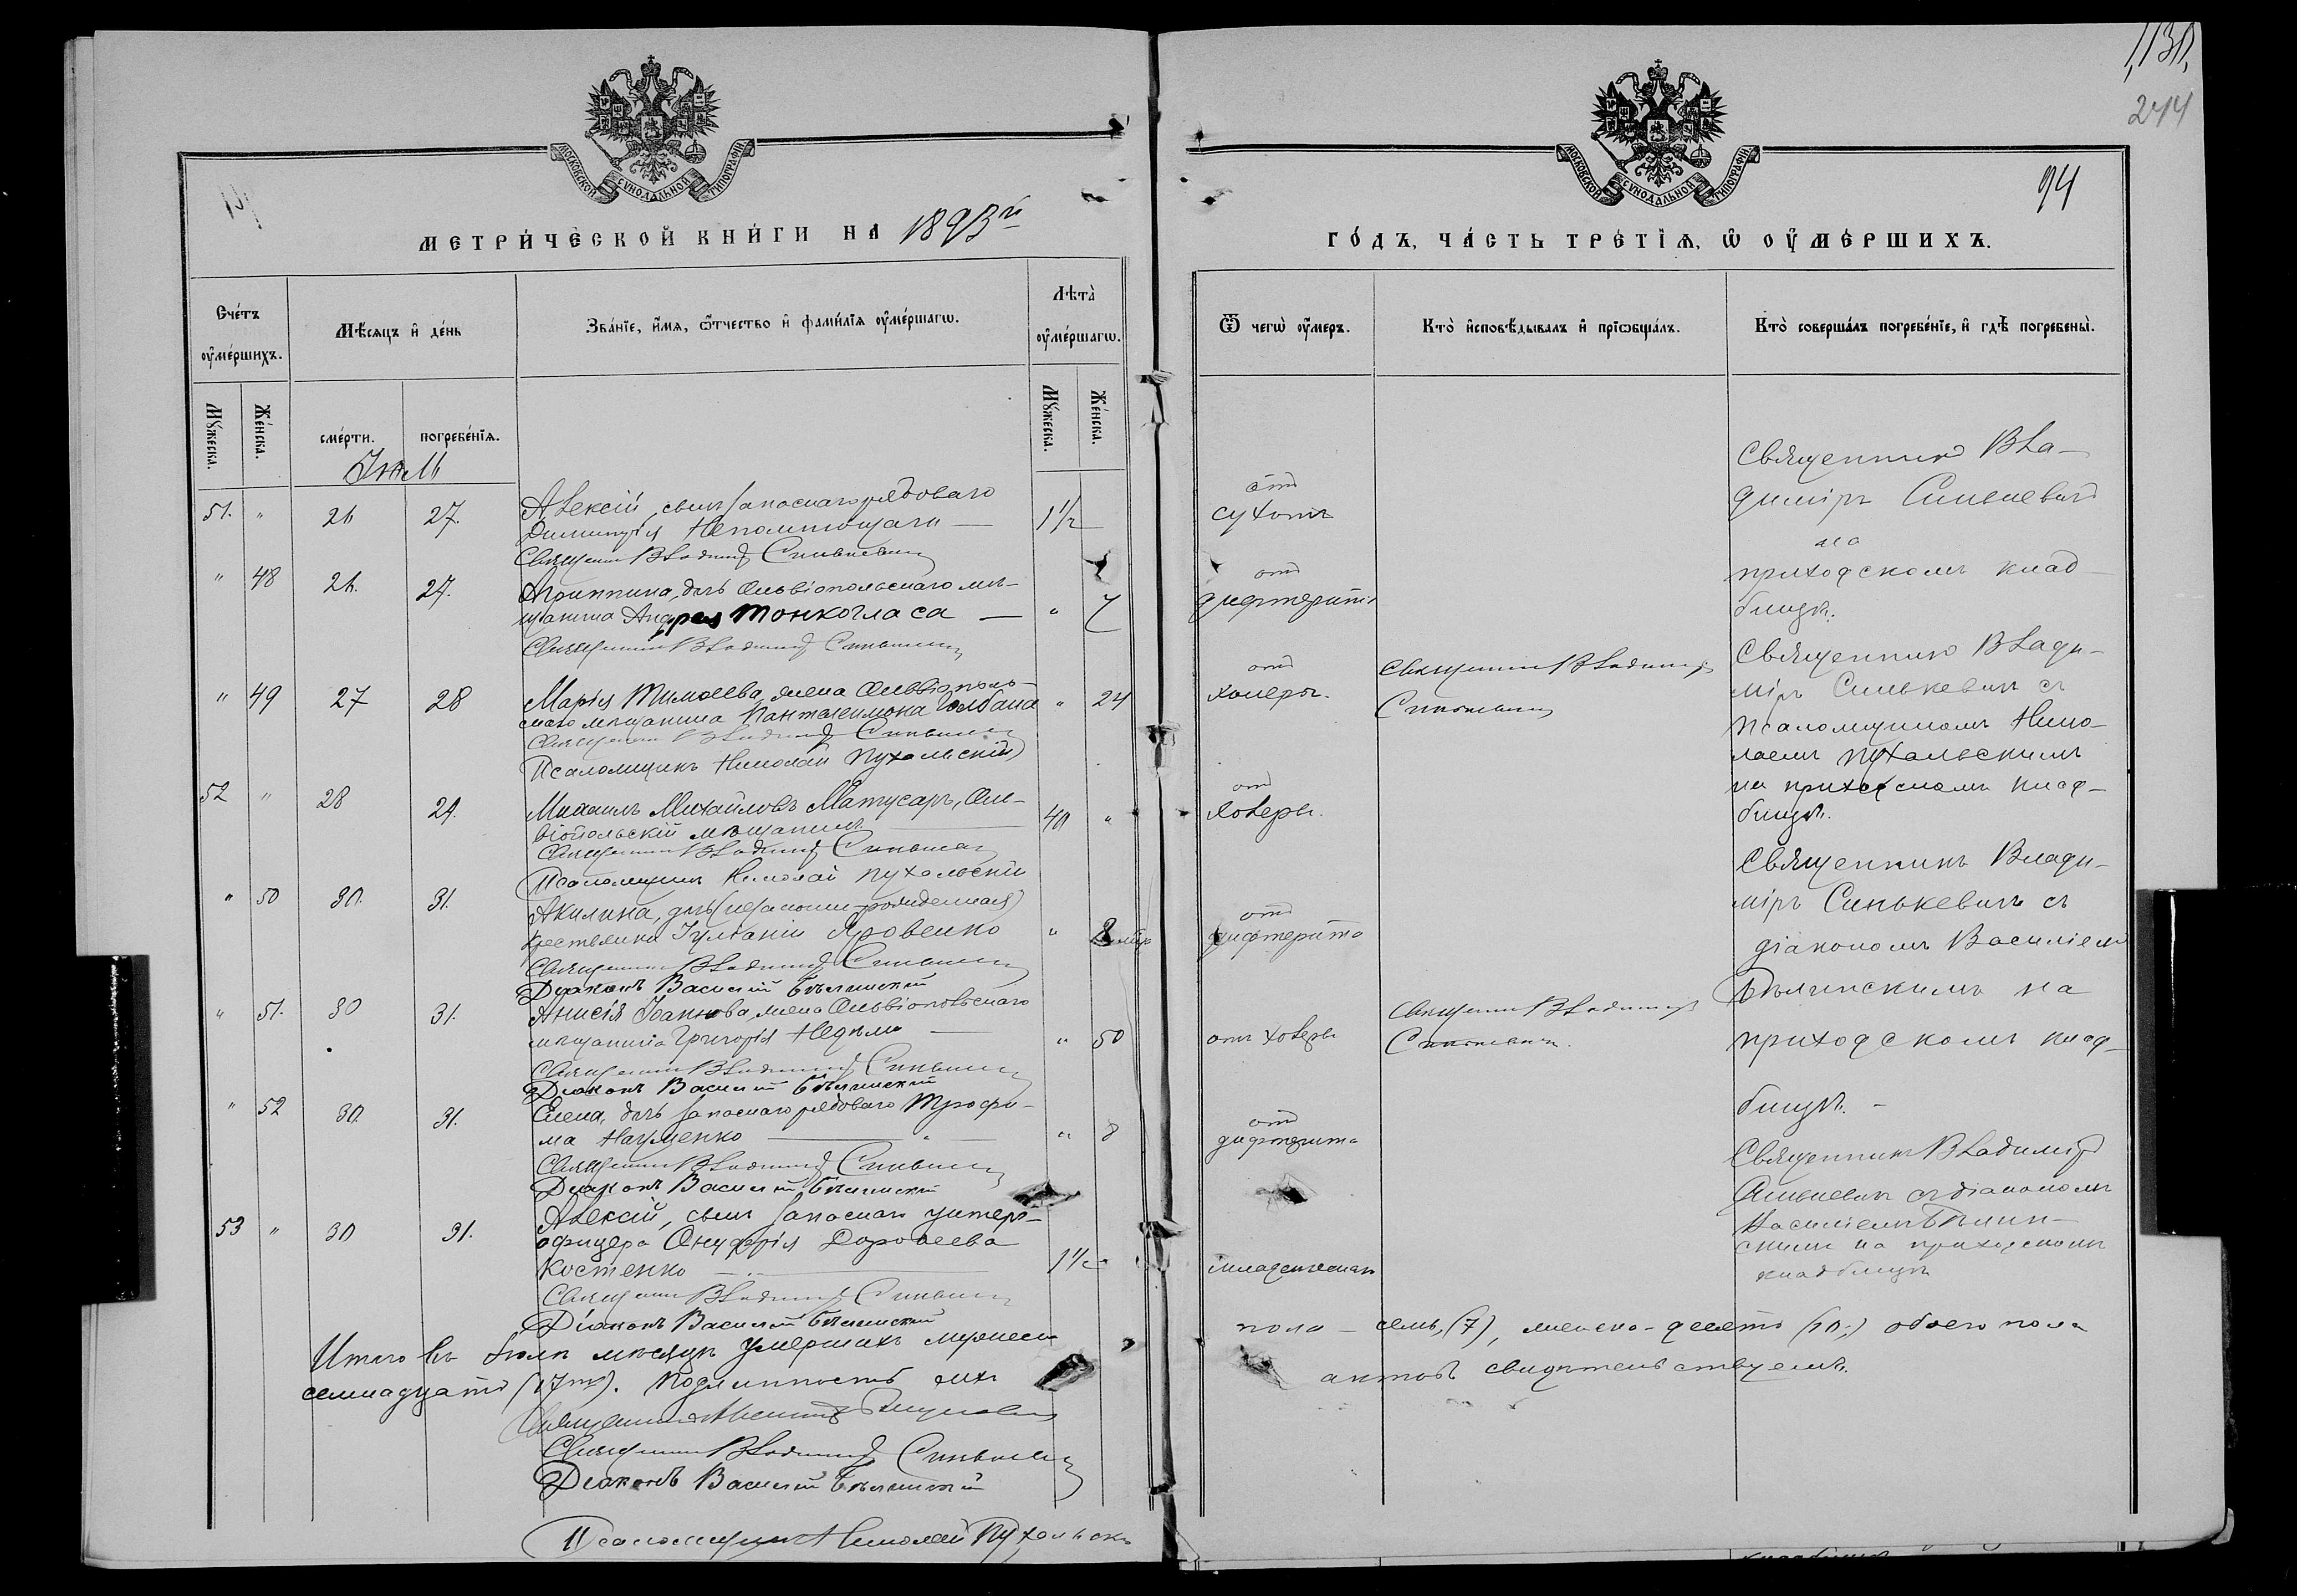 1130,
244
94
МОСКОВСКОЙ СУНОДАЛЬНОЙ ТИПОГРАФІИ
МОСКОВСКОЙ СУНОДАЛЬНОЙ ТИПОГРАФІИ
МЕТРИ́ЧЕСКОЙ КНИ́ГИ НА 1893й
ГО́ДЪ, ЧА́СТЬ ТРЕ́ТІѦ, Ѡ҆ ОУ҆МЕ́РШИХЪ.
Сче́тъ оу҆ме́ршихъ.
Мѣ́сяцъ и҆ де́нь
Зва́нїе, и҆́мя, ѻ҆́тчество и҆ фамі́лїя оу҆ме́ршагѡ.
Лѣ́та оу҆ме́ршагѡ.
Ѿ чегѡ̀ оу҆́меръ.
Кто̀ и҆сповѣ́дывалъ и҆ прїѡбща́лъ.
Кто̀ соверша́лъ погребе́нїе, и҆ гдѣ̀ погребены̀.
Мꙋ́жеска. Же́нска. сме́рти. погребе́нїя. Мꙋ́жеска. Же́нска.
Іюль
51. " 26 27. Алексій, сынъ запаснаго рядоваго
Димитрія Непомнющаго — 1½
Священникъ Владиміръ Синькевичъ
отъ
сухотъ
Священникъ Вла-
диміръ Синькевичъ
на
приходскомъ клад-
бищѣ.
" 48 26. 27. Агриппина, дочь Ольвіопольскаго мѣ-
щанина Андрея Тонкогласа — " 7
Священникъ Владиміръ Синькевичъ
отъ
дифтерита
" 49 27 28 Марія Тимоѳеева, жена Ольвіополь-
скаго мѣщанина Пантелеимона Голбана " 24
Священникъ Владиміръ Синькевичъ
Псаломщикъ Николай Пухальскій
отъ
холеры.
Священникъ Владиміръ
Синькевичъ
Священникъ Влади-
міръ Синькевичъ съ
псаломщикомъ Нико-
лаемъ Пухальскимъ
на приходскомъ клад-
бищѣ.
52 " 28 29. Михаилъ Михайловъ Матусаръ, Оль-
віопольскій мѣщанинъ — 40 "
Священникъ Владиміръ Синькевичъ
Псаломщикъ Николай Пухальскій
отъ
холеры.
" 50 30. 31. Акилина, дочь (незаконно-рожденная)
крестьянки Іуліаніи Яровенко "
Священникъ Владиміръ Синькевичъ
Діаконъ Василій Бѣлинскій
отъ
дифтерита
Священникъ Влади-
міръ Синькевичъ съ
діакономъ Василіемъ
Бѣлинскимъ на
приходскомъ клад-
бищѣ. —
" 51. 30 31. Анисія Іоаннова, жена Ольвіопольскаго
мѣщанина Григорія — " 50
Священникъ Владиміръ Синькевичъ
Діаконъ Василій Бѣлинскій
отъ холеры
Священникъ Владиміръ
Синькевичъ.
" 52 30. 31. Елена, дочь запаснаго рядоваго Трофи-
ма Науменко — " 8
Священникъ Владиміръ Синькевичъ
Діаконъ Василій Бѣлинскій
отъ
дифтерита
Священникъ Владиміръ
Синькевичъ съ діакономъ
Василіемъ Бѣлин-
скимъ на приходскомъ
кладбищѣ
53 " 30 31. Алексій, сынъ запаснаго унтеръ-
офицера Онуфрія Дороѳеева
Костенко — 1½
Священникъ Владиміръ Синькевичъ
Діаконъ Василій Бѣлинскій
Итого въ Іюлѣ мѣсяцѣ умершихъ мужеска
пола — семь, (7), женска - десять (10,) обоего пола
семнадцать (17ть). Подлинность сихъ
актовъ свидѣтельствуемъ.
Священникъ
Священникъ Владиміръ Синькевичъ
Діаконъ Василій Бѣлинскій
Псаломщикъ Николай Пухальскій